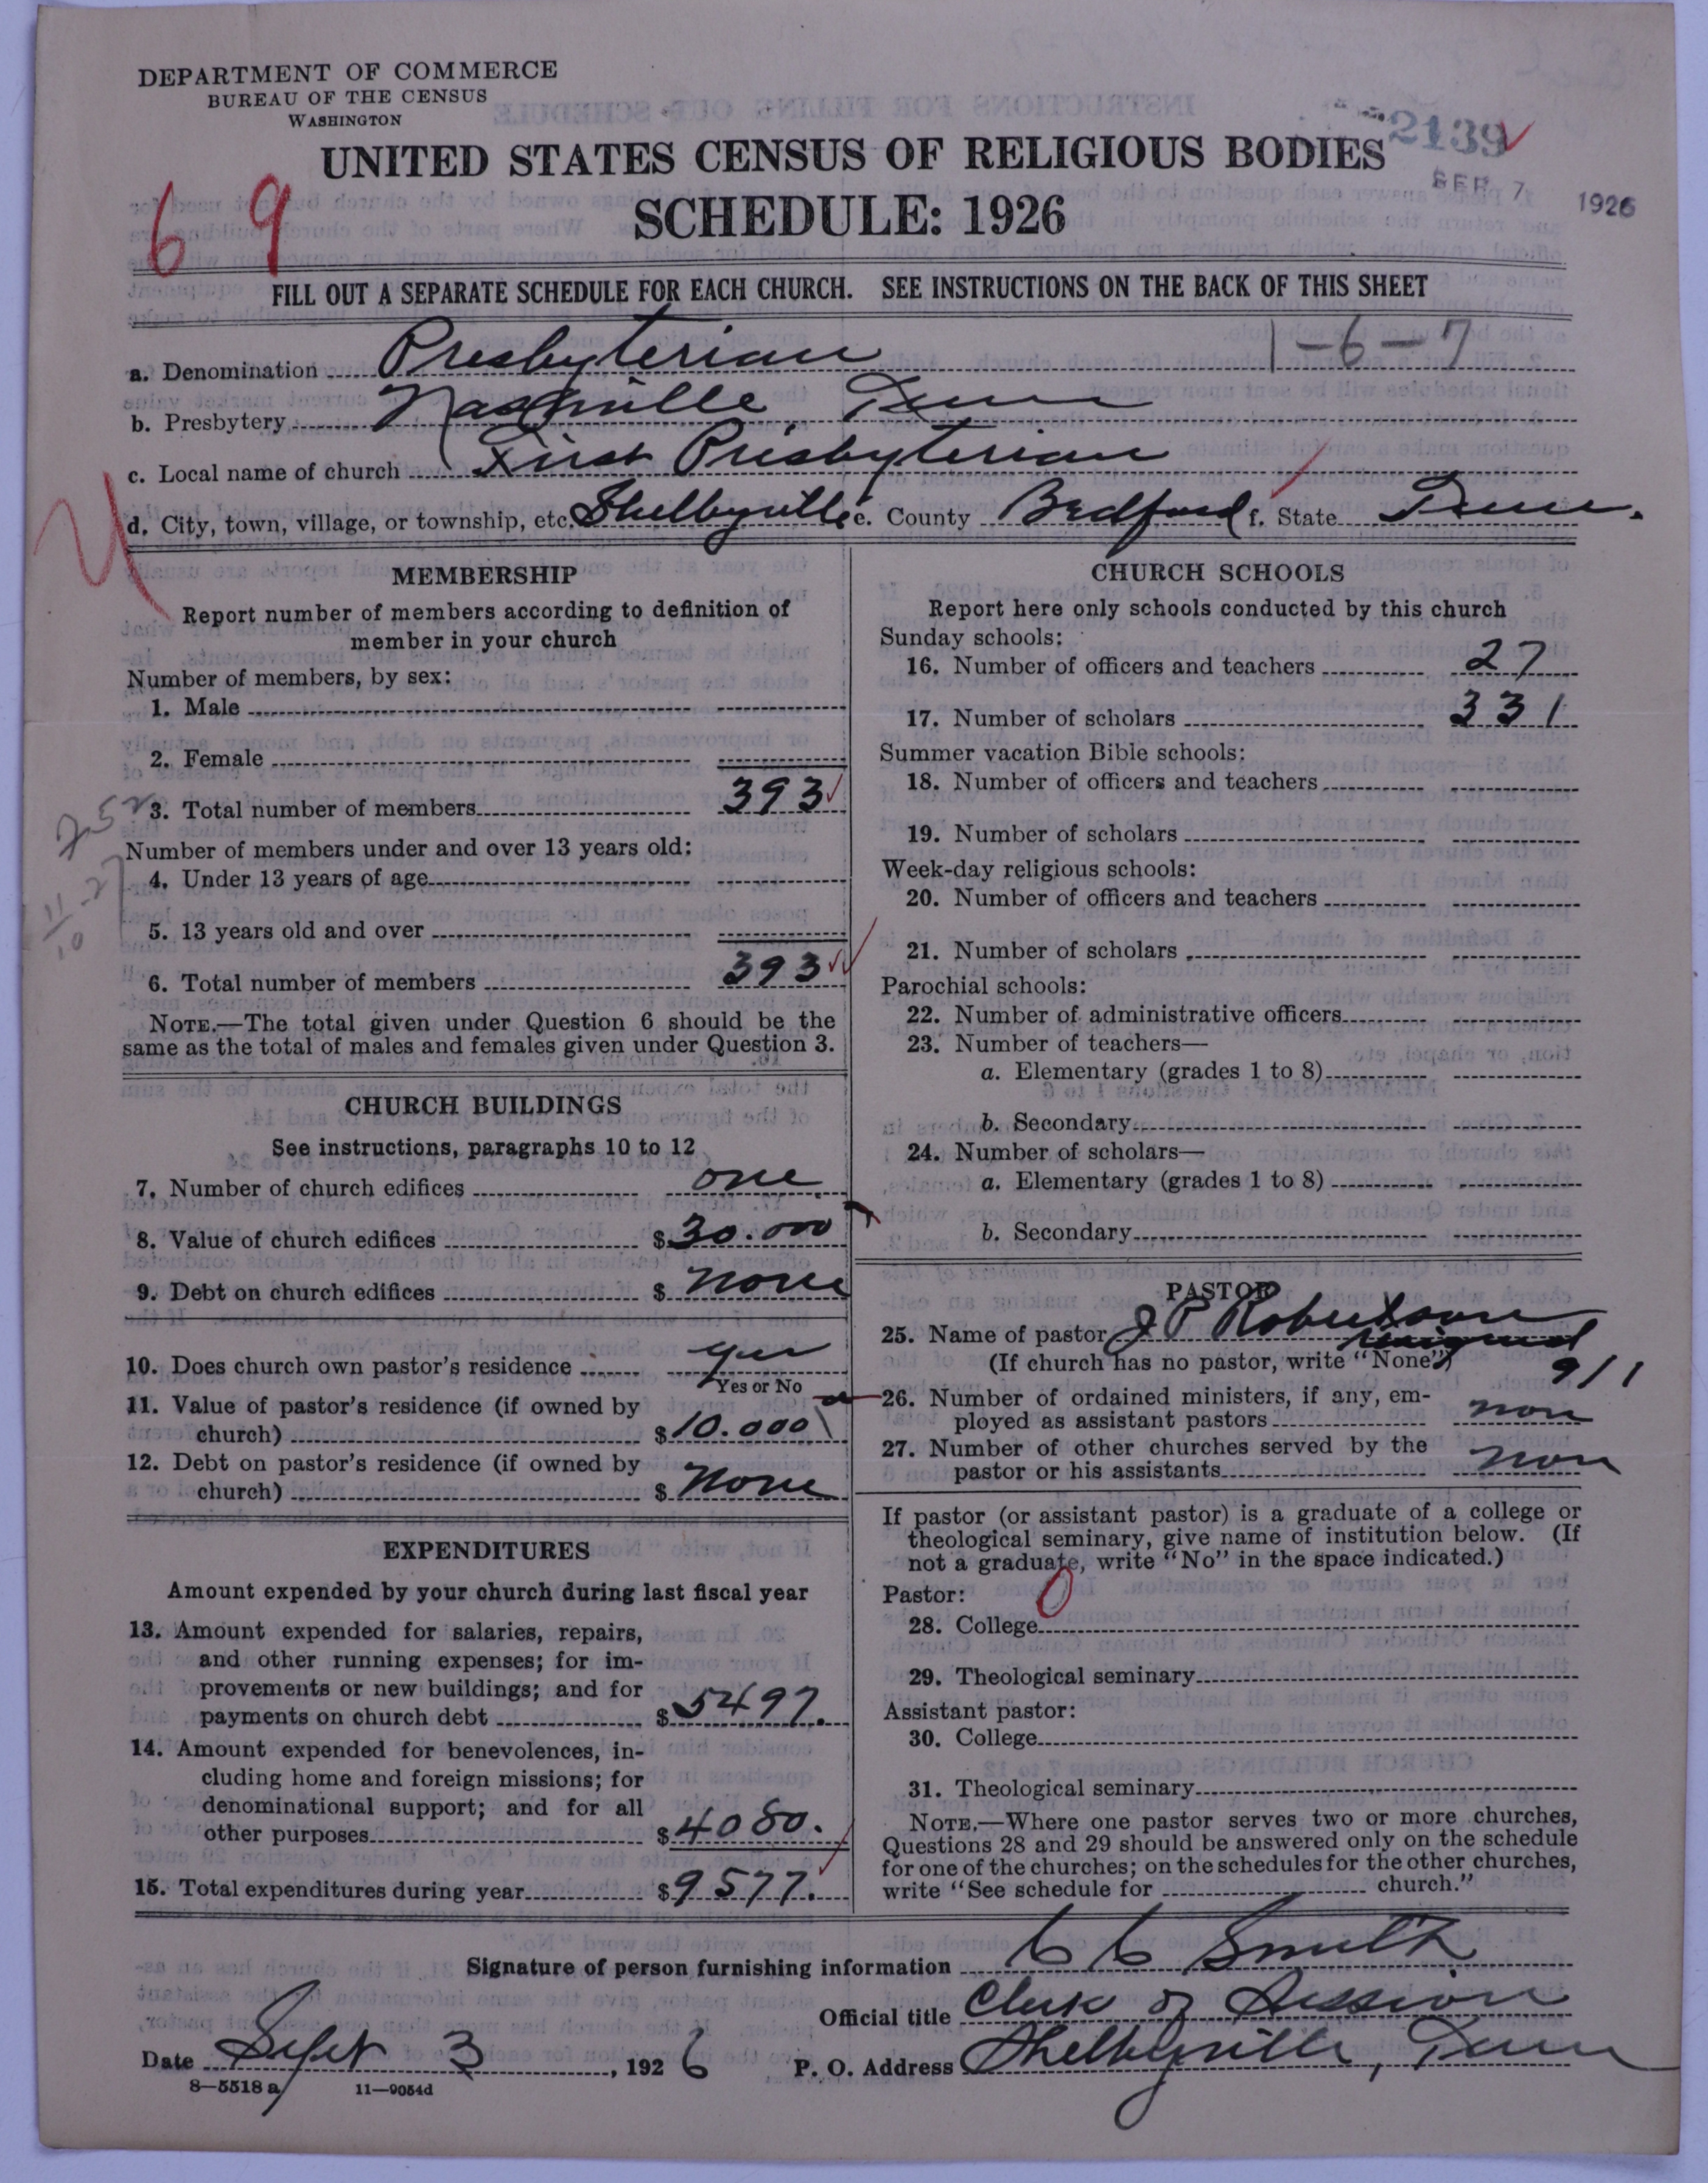 DEPARTMENT OF COMMERCE
BUREAU OF THE CENSUS
WASHINGTON
2139
UNITED STATES CENSUS OF RELIGIOUS BODIES
SEP 7 1926
SCHEDULE: 1926
6 9
FILL OUT A SEPARATE SCHEDULE FOR EACH CHURCH. SEE INSTRUCTIONS ON THE BACK OF THIS SHEET
a. Denomination Presbyterian 1-6-7
b. Presbytery Nashville Tenn
c. Local name of church First Presbyterian
d. City, town, village, or township, etc. Shelbyville e. County Bedford f. State Tenn.
MEMBERSHIP
Report number of members according to definition of
member in your church
Number of members, by sex:
1. Male
2. Female
3. Total number of members 393
Number of members under and over 13 years old:
4. Under 13 years of age
5. 13 years old and over
6. Total number of members 393
NOTE.—The total given under Question 6 should be the
same as the total of males and females given under Question 3.
CHURCH BUILDINGS
See instructions, paragraphs 10 to 12
7. Number of church edifices one
8. Value of church edifices $30.000
9. Debt on church edifices $ none
10. Does church own pastor's residence yes
Yes or No
11. Value of pastor's residence (if owned by
church) $10.000
12. Debt on pastor's residence (if owned by
church) $ none
EXPENDITURES
Amount expended by your church during last fiscal year
13. Amount expended for salaries, repairs,
and other running expenses; for im-
provements or new buildings; and for
payments on church debt $5497.
14. Amount expended for benevolences, in-
cluding home and foreign missions; for
denominational support; and for all
other purposes $4080.
15. Total expenditures during year $9577.
CHURCH SCHOOLS
Report here only schools conducted by this church
Sunday schools:
16. Number of officers and teachers 27
17. Number of scholars 331
Summer vacation Bible schools:
18. Number of officers and teachers
19. Number of scholars
Week-day religious schools:
20. Number of officers and teachers
21. Number of scholars
Parochial schools:
22. Number of administrative officers
23. Number of teachers—
a. Elementary (grades 1 to 8)
b. Secondary
24. Number of scholars—
a. Elementary (grades 1 to 8)
b. Secondary
PASTOR
25. Name of pastor J P Robertson
resigned
(If church has no pastor, write "None") 9/1
26. Number of ordained ministers, if any, em-
ployed as assistant pastors non
27. Number of other churches served by the
pastor or his assistants non
If pastor (or assistant pastor) is a graduate of a college or
theological seminary, give name of institution below. (If
not a graduate, write "No" in the space indicated.)
Pastor: 0
28. College
29. Theological seminary
Assistant pastor:
30. College
31. Theological seminary
NOTE.—Where one pastor serves two or more churches,
Questions 28 and 29 should be answered only on the schedule
for one of the churches; on the schedules for the other churches,
write "See schedule for church."
Signature of person furnishing information C C Smith
Official title Clerk of Session
Date Sept 3, 1926 P. O. Address Shelbyville, Tenn
8—5518 a 11—9054d